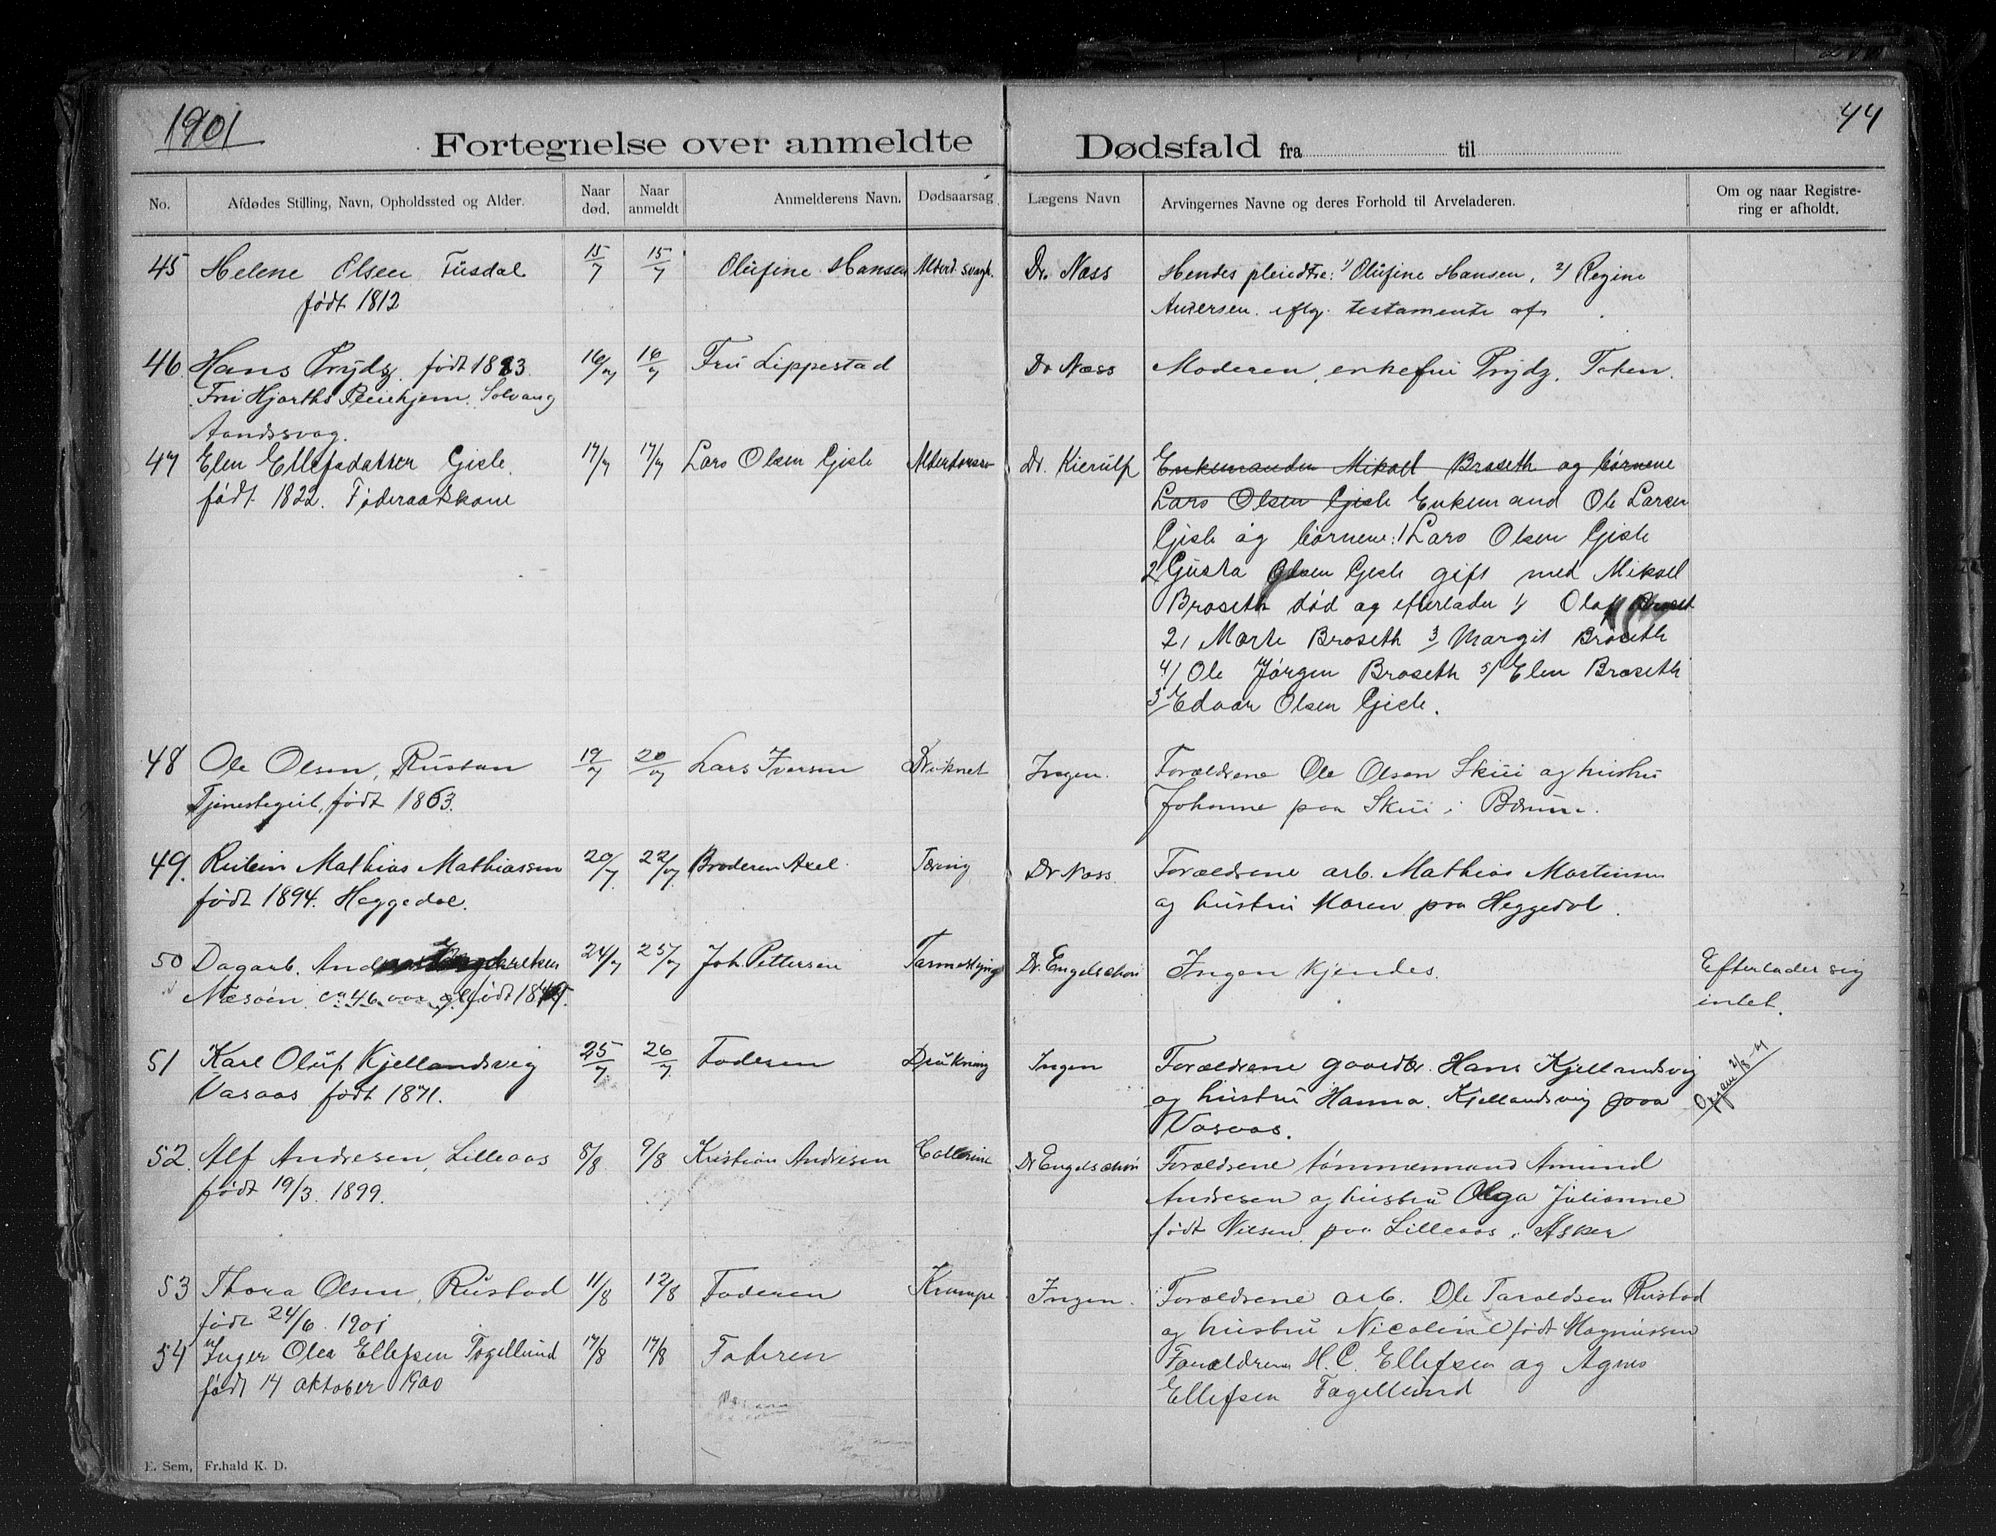 1901
44
Fortegnelse over anmeldte Dødsfald fra til
No. Afdødes Stilling, Navn, Opholdssted og Alder. Naar død. Naar anmeldt Anmelderens Navn. Dødsaarsag Lægens Navn Arvingernes Navne og deres Forhold til Arveladeren. Om og naar Registrering er afholdt.
45 Helene Olsen Fusdal 15/7 15/7 Olufine Hansen Alderd. svagh. Dr Næss Hendes pleiedtre: 1/ Olufine Hansen, 2/ Regine
født 1812 Andersen. iflg. testamente af
46 Hans Prydz. født 1883 16/7 16/7 Fru Lippestad Dr Næss Moderen, enkefru Prydz,
Fru Hjorths Pleiehjem. Solvang
Aandssvag.
47 Elen Ellefsdatter Gisle. 17/7 17/7 Lars Olsen Gisle Dr. Kierulf Enkemanden Mikael Braseth og børnene
født 1822. Føderaadskone Lars Olsen Gisle Enkemand Ole Larsen
Gisle og børnene: 1 Lars Olsen Gisle
2 Gusta Olsen Gisle gift med Mikael
Braseth død og efterlader 1/ Olaf Braset
2/ Marte Braseth 3/ Margit Braseth
4/ Ole Jørgen Braseth 5/ Elen Braseth
3/ Edvar Olsen Gisle.
48 Ole Olsen, Rustan 19/7 20/7 Lars Iversen Druknet Ingen. Forældrene Ole Olsen Skui og hustru
Tjenestegut, født 1863. Johanne paa Skui i Bærum.
49. Ruben Mathias Mathiassen 20/7 22/7 Broderen Axel. Tæring Dr Næss. Forældrene arb. Mathias Martinsen
født 1894. Heggedal. og hustru Maren paa Heggedal.
50 Dagarb. 24/7 25/7 Joh. Pettersen Dr. Engelschøn Ingen kjendes. Efterlader sig
Næsøen. ca 46 aar født intet.
51 Karl Oluf Kjellandsvig 25/7 26/7 Faderen Drukning Ingen Forældrene gaardbr. Hans Kjellandsvig
Vasaas født 1871. og hustru Hanna. Kjellandsvig paa
Vasaas.
52. Alf Andresen, Lilleaas 8/8 9/8 Kristian Andresen Collerine Dr Engelschøn Forældrene tømmermand Amund
født 19/3. 1899. Andresen og hustru Olga Julianne
født Nilsen. paa Lilleaas i Asker
53 Thora Olsen, Rustad 11/8 12/8 Faderen Krampe Ingen. Forældrene arb. Ole Taraldsen Rustad
født 24/6. 1901 og hustru Nicoline født Magnussen
54 Inger Olea Ellefsen Fagellund 17/8 17/8 Faderen Forældrene H. C. Ellefsen og Agnes
født 14 oktober 1900 Ellefsen Fagellund
E. Sem, Fr.hald K. D.